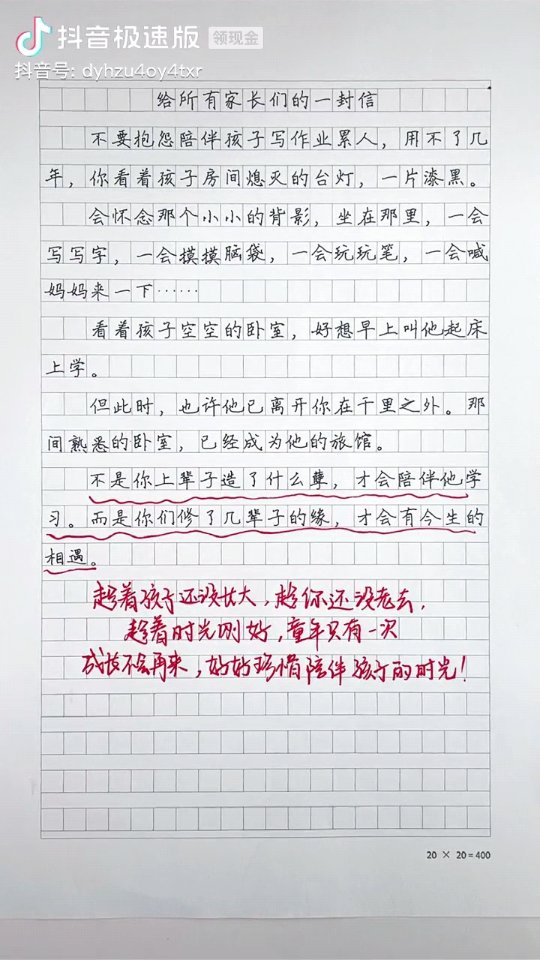 抖音极速版 领现金
抖音号: dyhzu4oy4txr
给所有家长们的一封信
不要抱怨陪伴孩子写作业累人，用不了几
年，你看着孩子房间熄灭的台灯，一片漆黑。
会怀念那个小小的背影，坐在那里，一会
写写字，一会摸摸脑袋，一会玩玩笔，一会喊
妈妈来一下……
看着孩子空空的卧室，好想早上叫他起床
上学。
但此时，也许他已离开你在千里之外。那
间熟悉的卧室，已经成为他的旅馆。
不是你上辈子造了什么孽，才会陪伴他学
习。而是你们修了几辈子的缘，才会有今生的
相遇。
趁着孩子还没长大，趁你还没老去，
趁着时光刚好，童年只有一次
成长不会再来，好好珍惜陪伴孩子的时光！
20 × 20=400